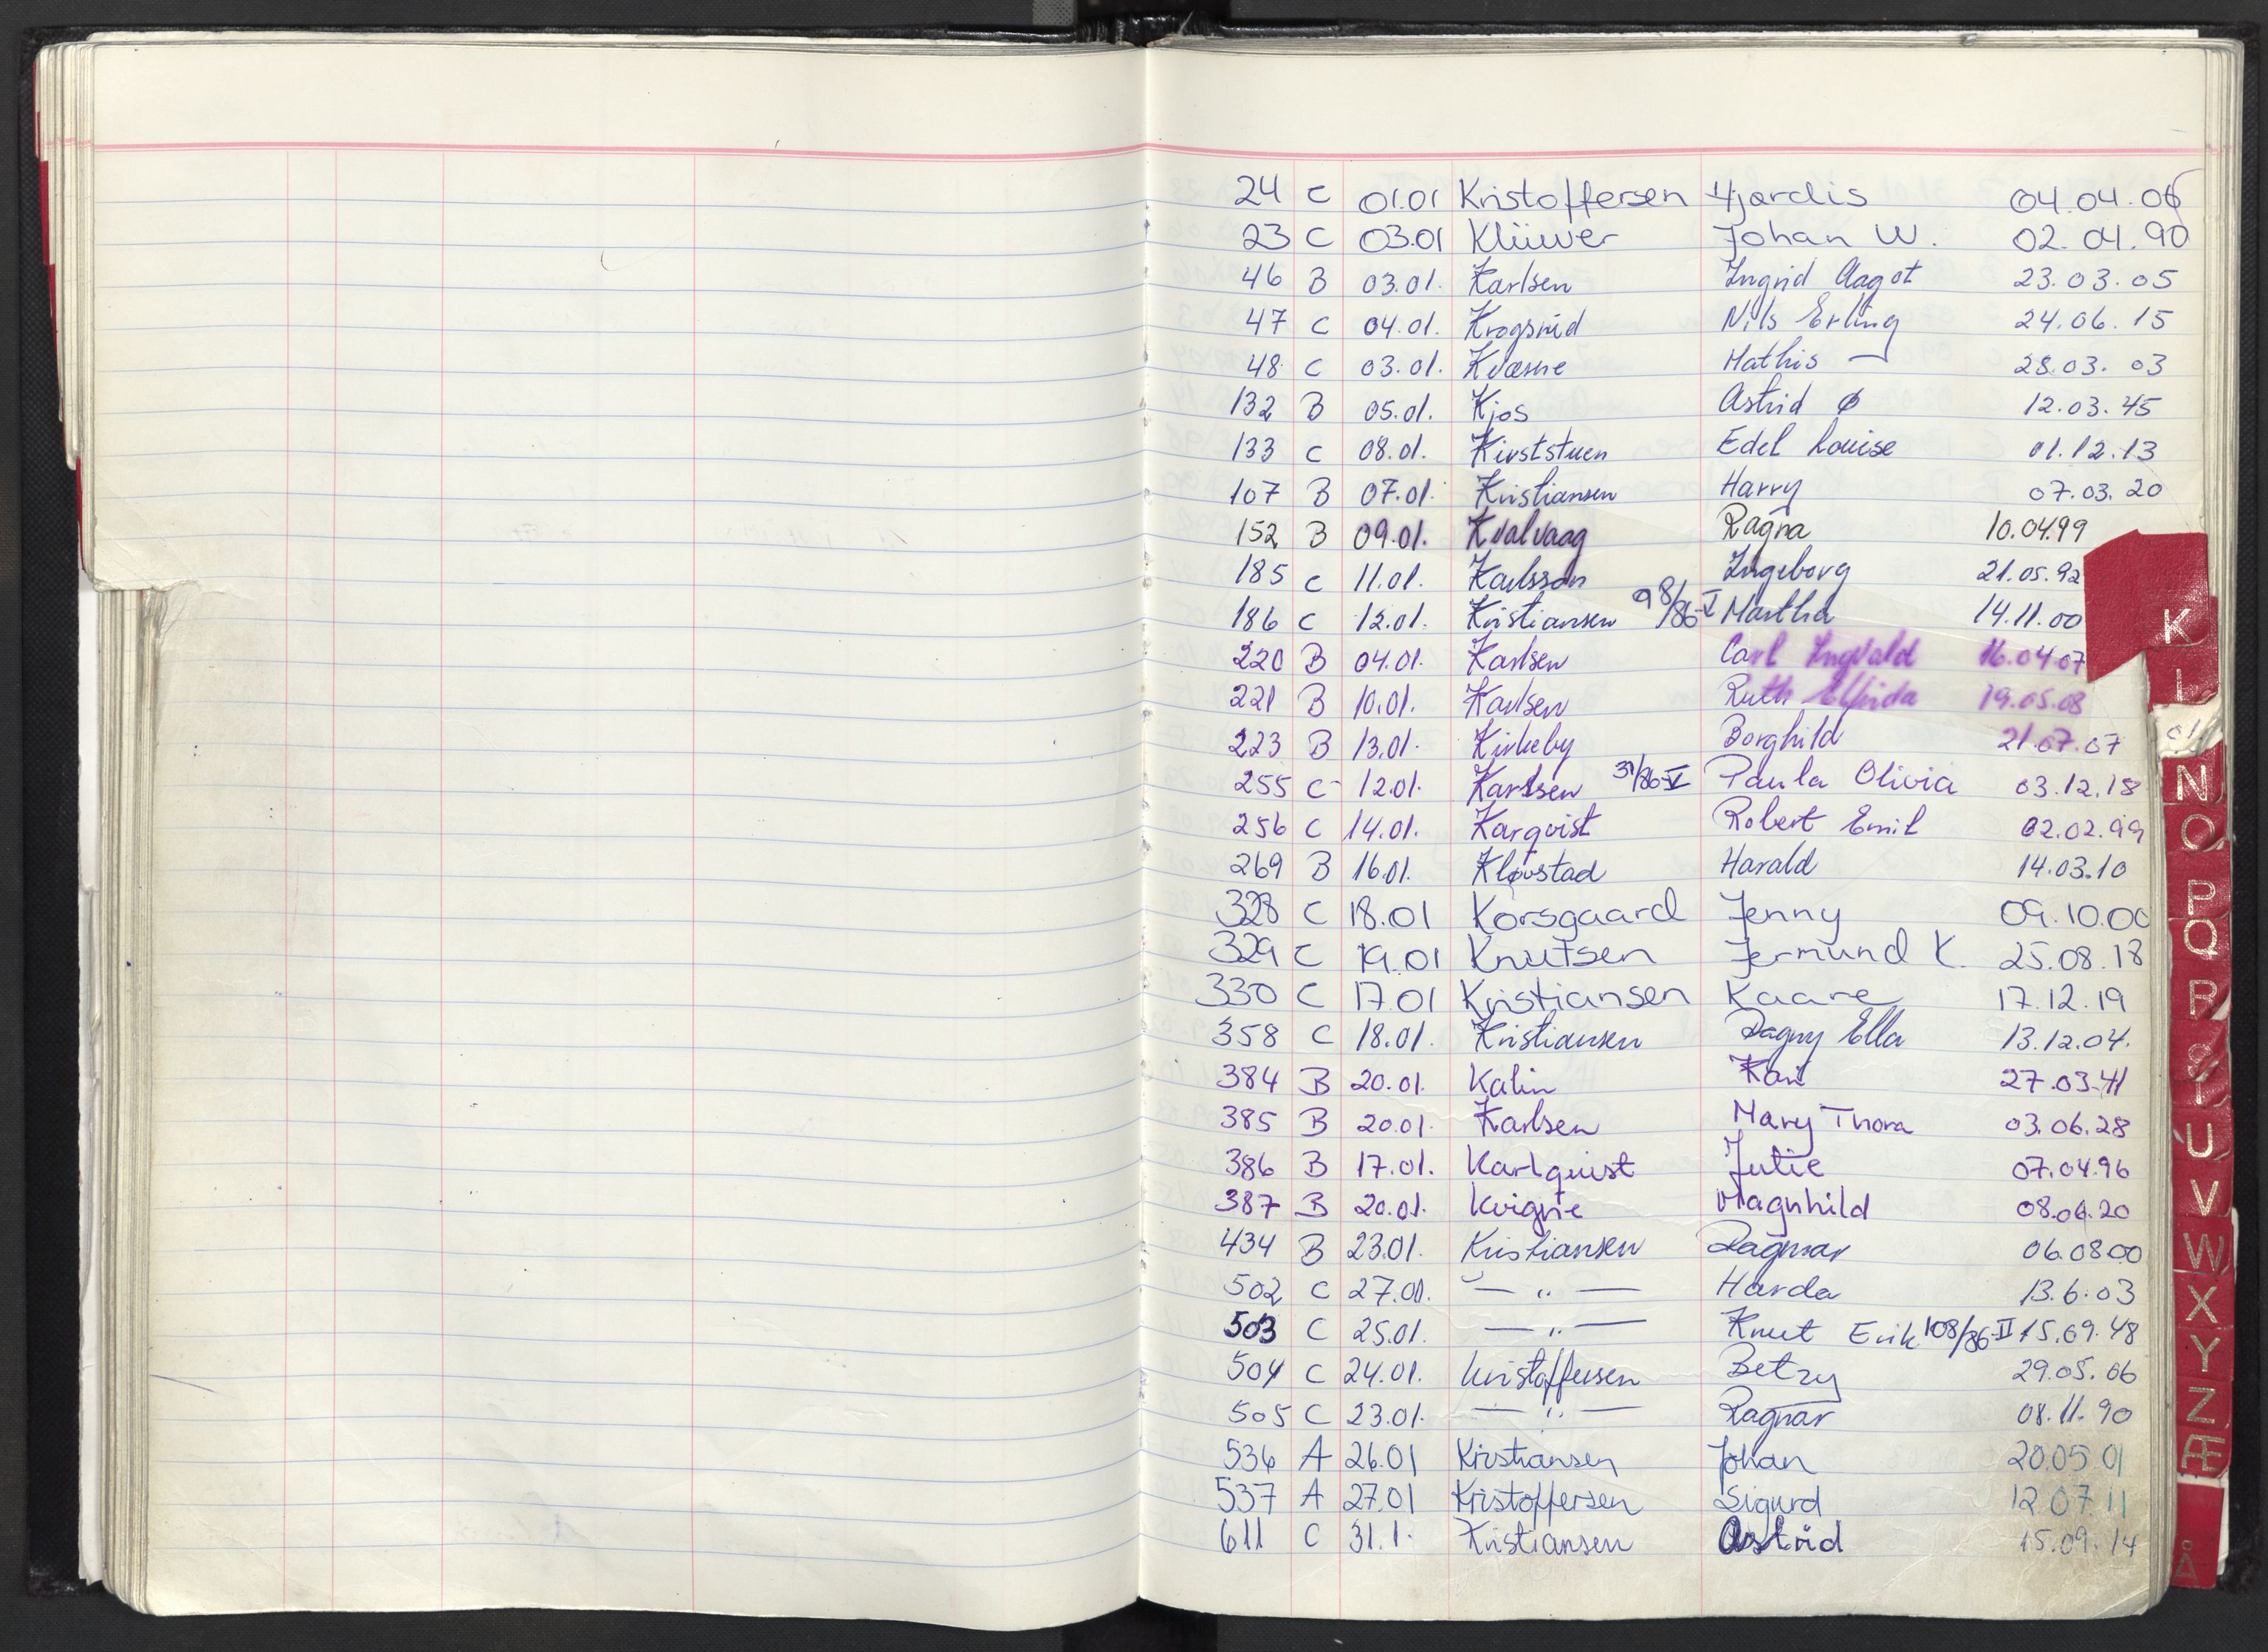 24 C 01.01 Kristoffersen Hjørdis 04.04.06
23 C 03.01 Klüwer Johan W. 02.04.90
46 B 03.01. Karlsen Ingrid Aagot 23.03.05
47 C 04.01. Krogsrud Nils Erling 24.06.15
48 C 03.01. Kværne Mathis 28.03.03
132 B 05.01. Kjos Astrid Ø 12.03.45
133 C 08.01. Edel Louise 01.12.13
107 B 07.01. Kristiansen Harry 07.03.20
152 B 09.01. Kvalvaag Ragna 10.04.99
185 C 11.01. Karlsson Ingeborg 21.05.92
186 C 12.01. Kristiansen 98/86-V Martha 14.11.00
220 B 04.01. Karlsen Carl Ingvald 16.04.07
221 B 10.01. Karlsen Ruth 19.05.08
223 B 13.01. Kirkeby Borghild 21.07.07
255 C 12.01. Karlsen 31/86-V Paula Olivia 03.12.18
256 C 14.01. Karqvist Robert Emil 02.02.99
269 B 16.01. Kløvstad Harald 14.03.10
328 C 18.01 Korsgaard Jenny 09.10.00
329 C 19.01 Knutsen Jermund K. 25.08.18
330 C 17.01 Kristiansen Kaare 17.12.19
358 C 18.01. Kristiansen Dagny Ella 13.12.04.
384 B 20.01. Kalin Kari 27.03.41
385 B 20.01. Karlsen Mary Thora 03.06.28
386 B 17.01. Karlquist Julie 07.04.96
387 B 20.01. Kvigne Magnhild 08.06.20
434 B 23.01. Kristiansen Dagmar 06.08.00
502 C 27.01. — " — Harda 13.6.03
503 C 25.01. — " — Knut Erik 108/86-II 15.09.48
504 C 24.01. Kristoffersen Betzy 29.05.06
505 C 23.01. — " — Ragnar 08.11.90
536 A 26.01 Kristiansen Johan 20.05 01
537 A 27.01 Kristoffersen Sigurd 12.07.11
611 C 31.1. Kristiansen Astrid 15.09.14
K
L
N
O
P
Q
R
S
T
U
V
W
X
Y
Z
Æ
Å